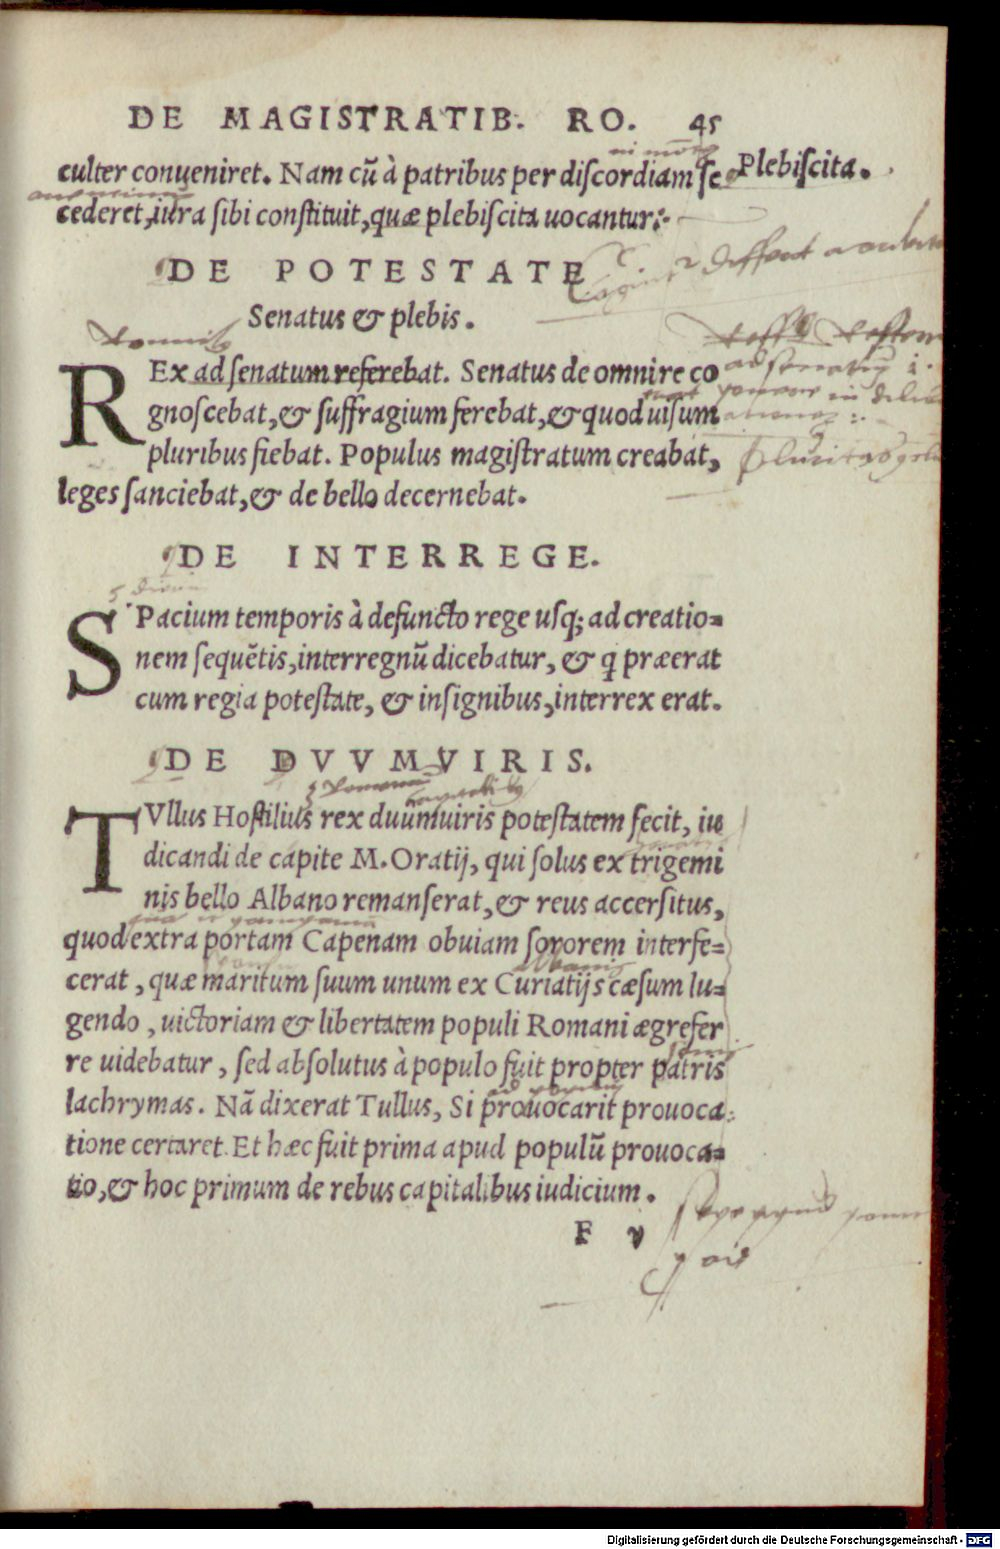 DE MAGISTRATIB. RO. 45
culter conueniret. Nam cū à patribus per discordiam se Plebiscita.
cederet, iura sibi constituit, quæ plebiscita uocantur:
DE POTESTATE
Senatus & plebis.
REx ad senatum referebat. Senatus de omnire co
gnoscebat, & suffragium ferebat, & quod uisum
pluribus fiebat. Populus magistratum creabat,
leges sanciebat, & de bello decernebat.
DE INTERREGE.
SPacium temporis à defuncto rege usq; ad creatio=
nem sequētis, interregnū dicebatur, & q præerat
cum regia potestate, & insignibus, interrex erat.
DE DVVMVIRIS.
TVllus Hostilius rex duumuiris potestatem fecit, iu
dicandi de capite M. Oratij, qui solus ex trigemi
nis bello Albano remanserat, & reus accersitus,
quod extra portam Capenam obuiam sororem interfe=
cerat, quæ maritum suum unum ex Curiatijs cæsum lu=
gendo, uictoriam & libertatem populi Romani ægrefer
re uidebatur, sed absolutus à populo fuit propter patris
lachrymas. Nā dixerat Tullus, Si prouocarit prouoca=
tione certaret. Et hæc fuit prima apud populū prouoca=
tio, & hoc primum de rebus capitalibus iudicium.
F v
Digitalisierung gefördert durch die Deutsche Forschungsgemeinschaft - DFG